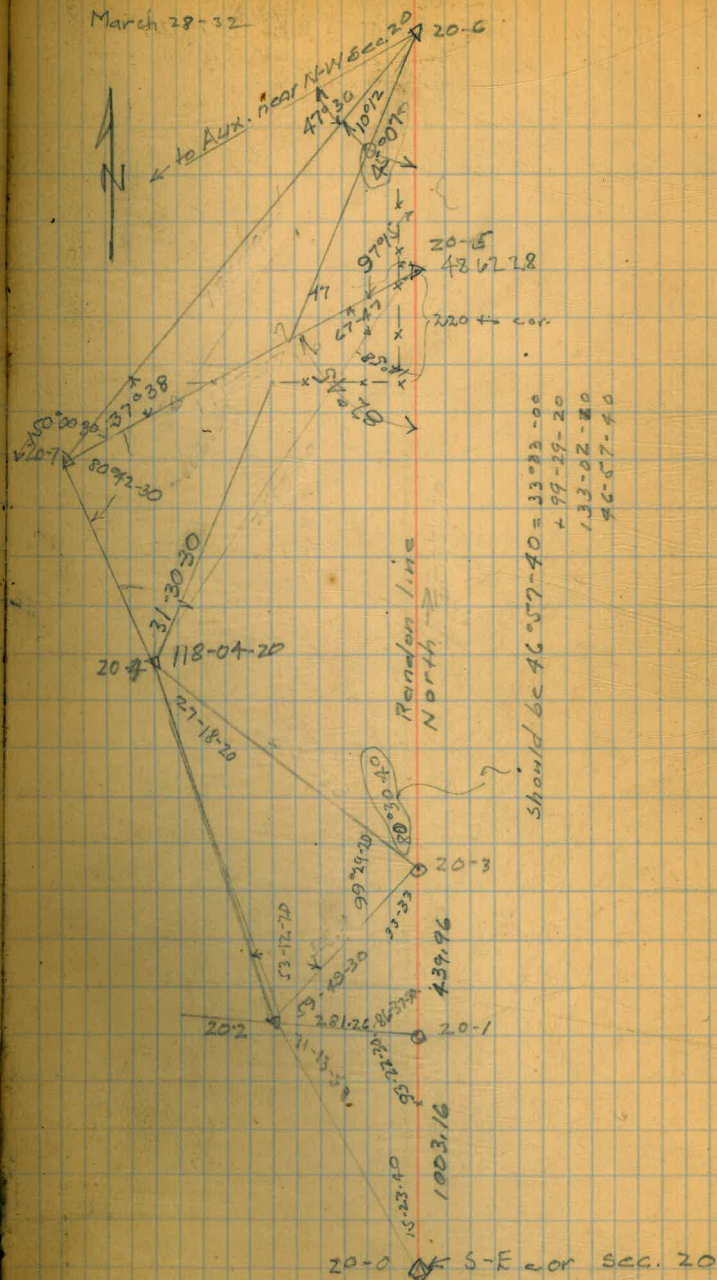 March 28-32
20-6
to Aux. near N-W Sec. 20
47°30
10°12
45°07
N
97°15
20-5
4862.28
47
67°47
220 to cor.
37°38
50°00-30
20-7
80°42-30
31-30-30
20-4
118-04-20
27-18-20
Random line
North
should be 46°57-40 = 33°33-00
+ 99-29-20
133-02-20
46-57-40
80°30-40
?
99°29-20
20-3
33-33
53-12-20
59-49-30
439.96
20-2
281.26
20-1
1003.16
15-23-40
20-0
S-E cor sec. 20